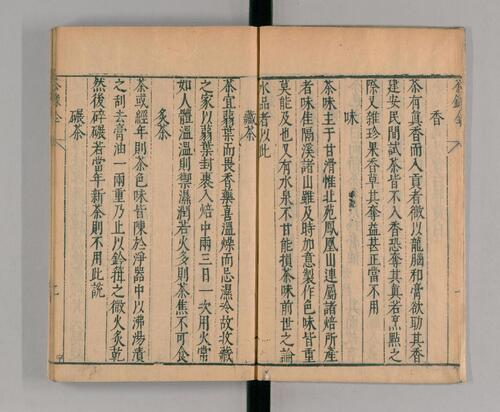 茶錄全
香
茶有真香而入貢者微以龍腦和膏欲助其香
建安民間試茶皆不入香恐奪其真若烹點之
際又雜珍果香草其奪益甚正當不用
味
茶味主于甘滑惟北苑鳳凰山連屬諸焙所產
者味佳隔溪諸山雖及時加意製作色味皆重
莫能及也又有水泉不甘能損茶味前世之論
水品者以此
藏茶
茶宜蒻葉而畏香藥喜溫燥而忌濕冷故收藏
之家以蒻葉封裹入焙中兩三日一次用火常
如人體溫溫則禦濕潤若火多則茶焦不可食
炙茶
茶或經年則茶色味皆陳於淨器中以沸湯漬
之刮去膏油一兩重乃止以鈐箝之微火炙乾
然後碎碾若當年新茶則不用此說
碾茶
茶錄全